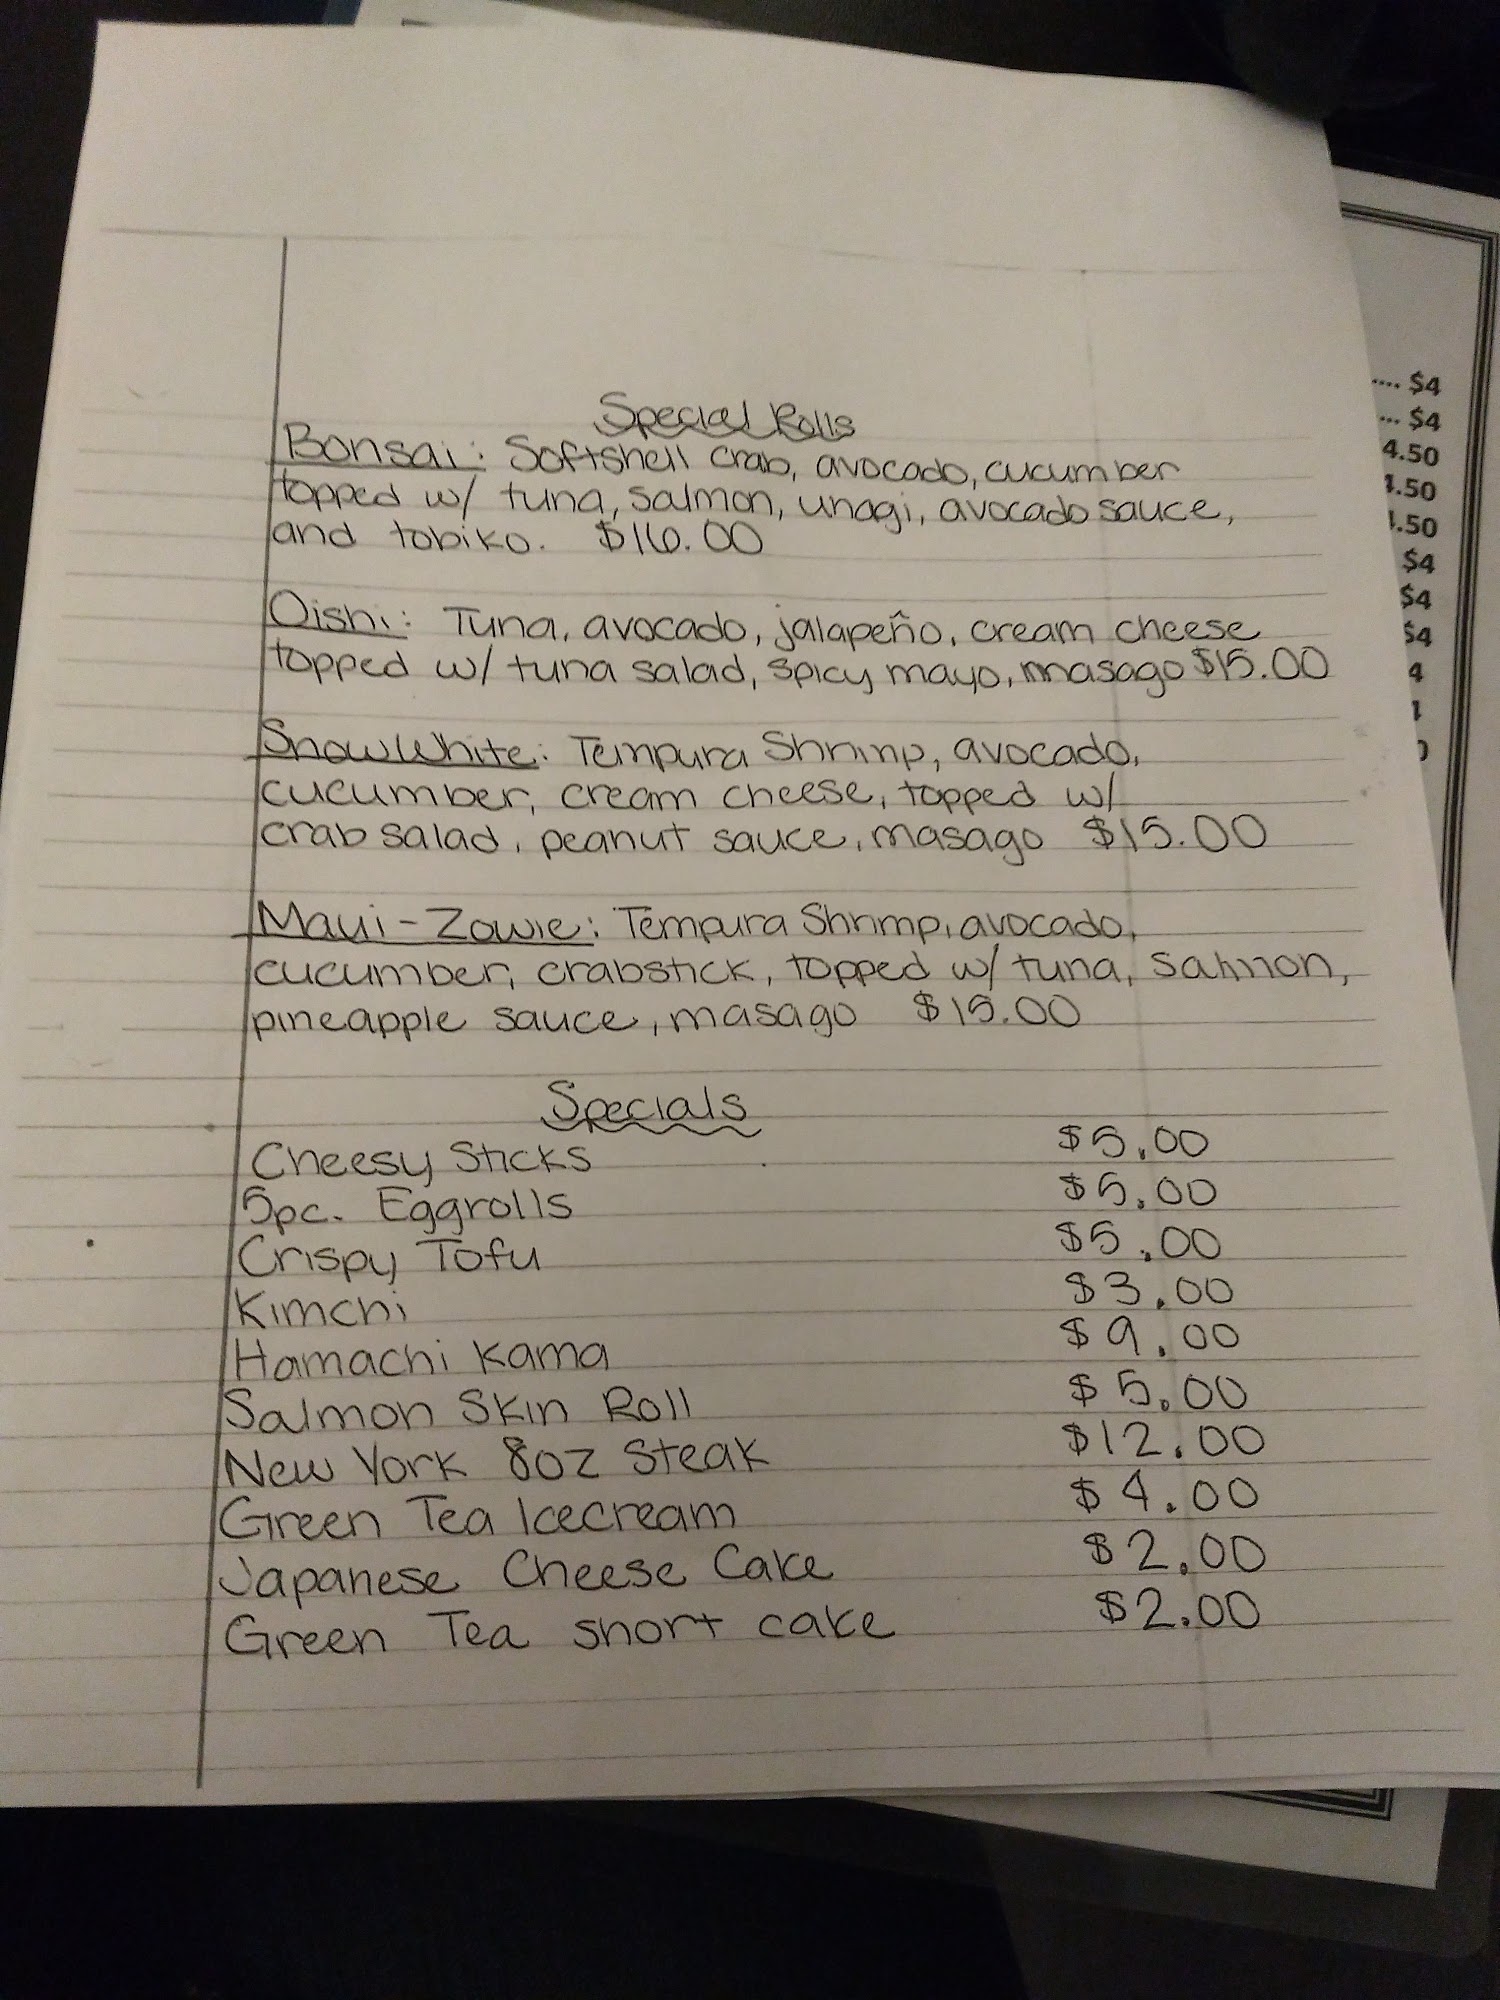 Special Rolls
Bonsai: Softshell crab, avocado, cucumber
topped w/ tuna, salmon, unagi, avocado sauce,
and tobiko. $16.00
Oishi: Tuna, avocado, jalapeño, cream cheese
topped w/ tuna salad, spicy mayo, masago $15.00
Snow White: Tempura Shrimp, avocado,
cucumber, cream cheese, topped w/
crab salad, peanut sauce, masago $15.00
Maui-Zowie: Tempura Shrimp, avocado,
cucumber, crabstick, topped w/ tuna, salmon,
pineapple sauce, masago $15.00
Specials
Cheesy Sticks $5.00
5pc. Eggrolls $5.00
Crispy Tofu $5.00
Kimchi $3.00
Hamachi Kama $9.00
Salmon Skin Roll $5.00
New York 8oz Steak $12.00
Green Tea Icecream $4.00
Japanese Cheese Cake $2.00
Green Tea short cake $2.00
.... $4
... $4
4.50
4.50
.50
$4
$4
$4
4